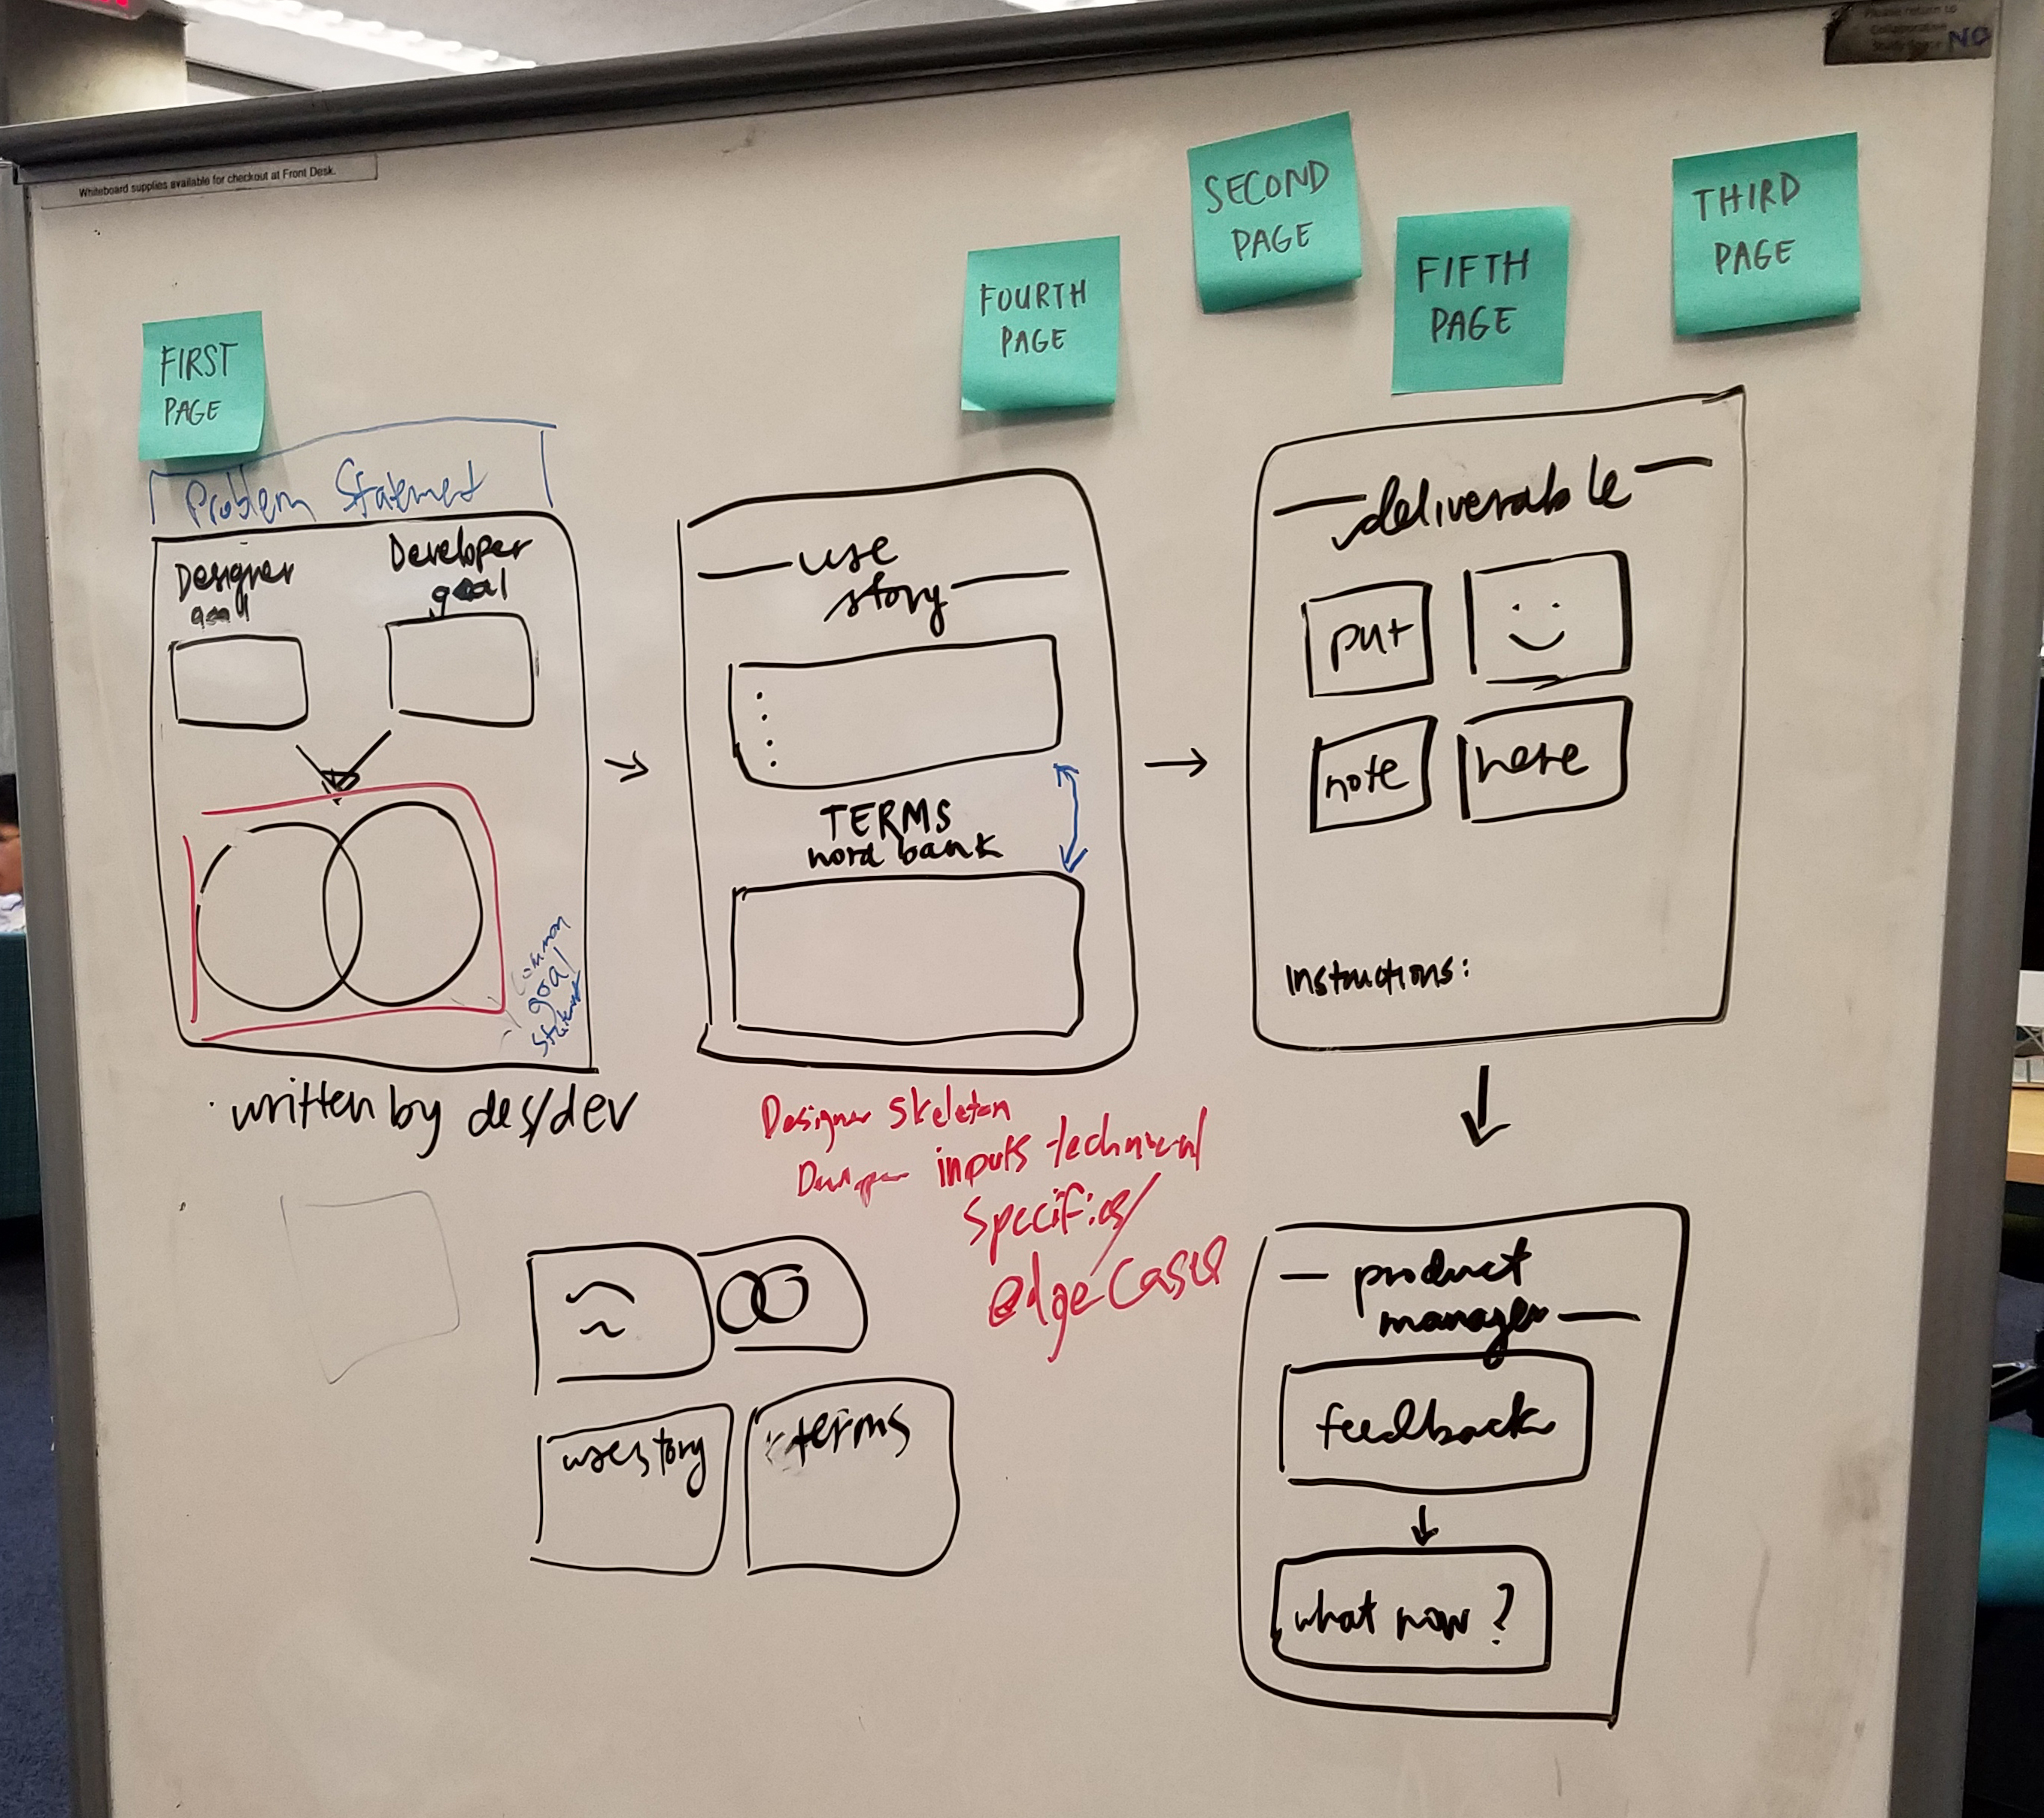 Please return to
Collaborative
NO
Whiteboard supplies available for checkout at Front Desk.
FIRST
PAGE
FOURTH
PAGE
SECOND
PAGE
FIFTH
PAGE
THIRD
PAGE
Problem Statement
Designer
goal
Developer
goal
common
goal
statement
written by des/dev
use
story
TERMS
word bank
Designer Skeleton
inputs technical
Specifics/
edge cases
deliverable
put
note
here
Instructions:
product
manager
feedback
what now?
usestory
terms